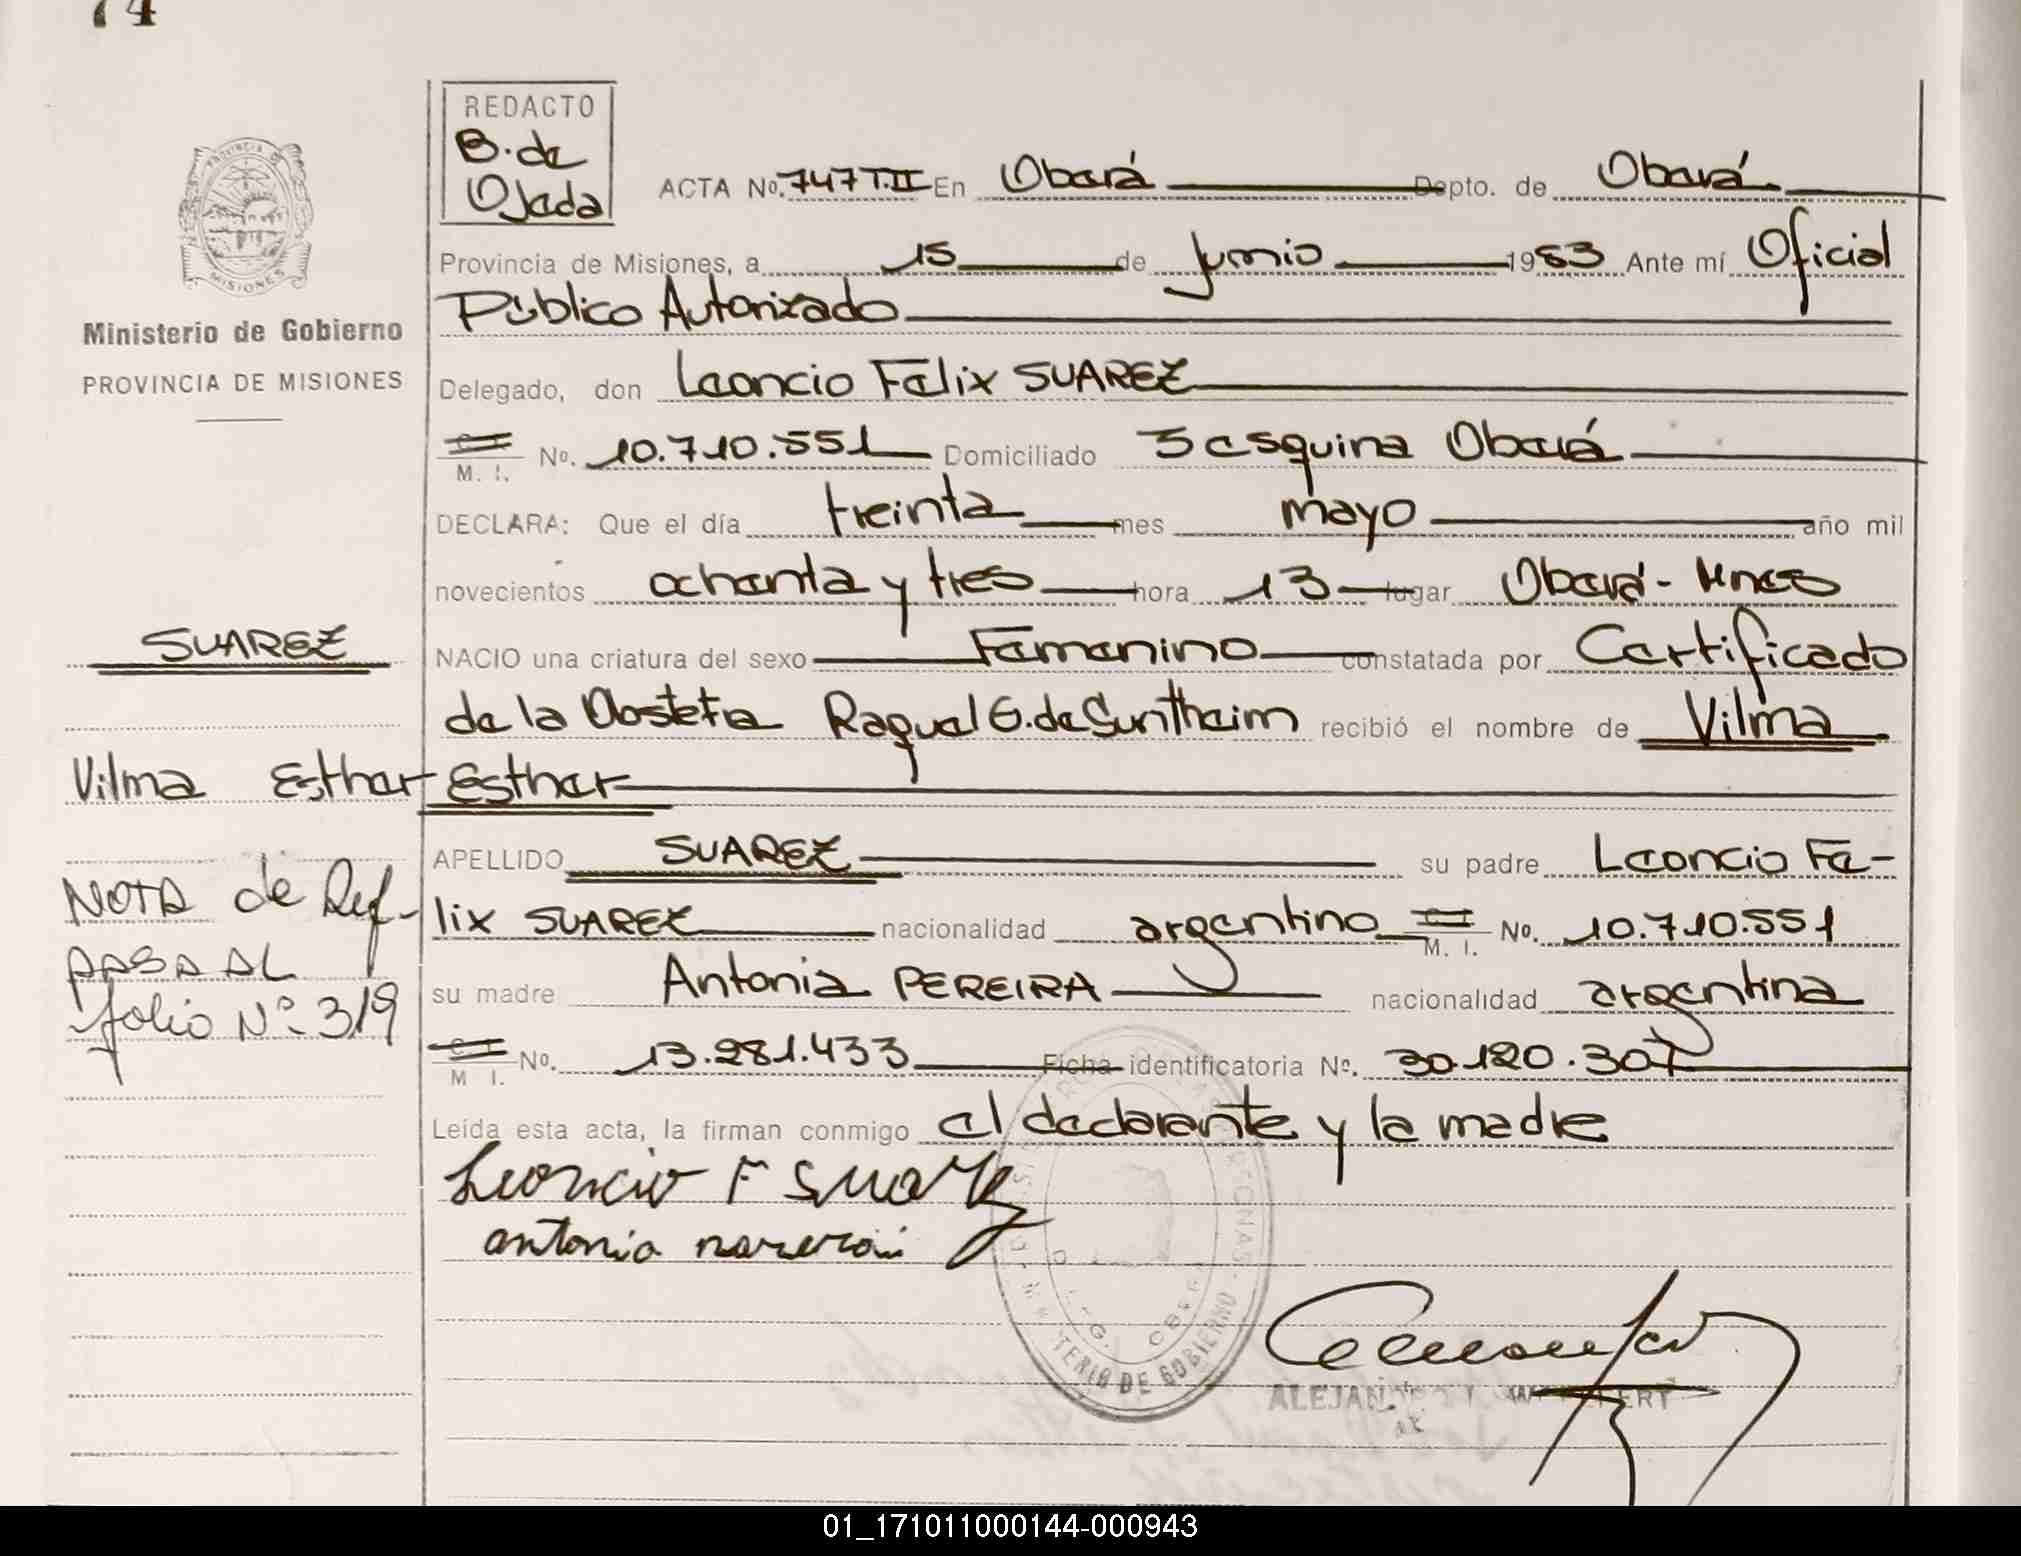 74
REDACTO
B. de
Ojeda
ACTA No. 747 T.II En Oberá Depto. de Oberá
Provincia de Misiones, a 15 de junio 1983 Ante mí Oficial
Público Autorizado
Delegado, don Leoncio Felix SUAREZ
C I
M. I. No. 10.710.551 Domiciliado 3 esquina Oberá
DECLARA: Que el día treinta mes mayo año mil
novecientos ochenta y tres hora 13 lugar Oberá - Mnes
NACIO una criatura del sexo Femenino constatada por Certificado
de la Obstetra Raquel G. de Suntheim recibió el nombre de Vilma
Esther
APELLIDO SUAREZ su padre Leoncio Fe-
lix SUAREZ nacionalidad argentino C I M. I. No. 10.710.551
su madre Antonia PEREIRA nacionalidad argentina
C I
M I. No. 13.281.433 Ficha identificatoria No. 30.120.307
Leída esta acta, la firman conmigo el declarante y la madre
Leoncio F Suarez
antonia
TERIO DE GOBIERNO
ALEJAN
PROVINCIA DE
MISIONES
Ministerio de Gobierno
PROVINCIA DE MISIONES
SUAREZ
Vilma Esther
NOTA de Ref-
PASA AL
folio Nº 319
01_171011000144-000943